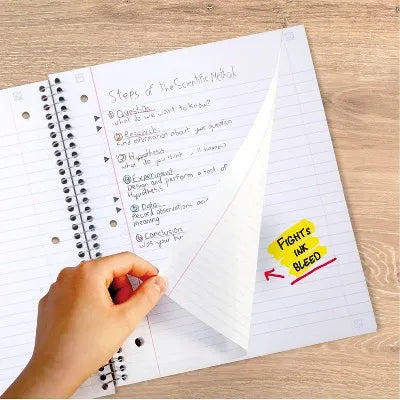 Steps of The Scientific Method
① Question
what do we want to know?
② Research
Find information about your question
③ Hypothesis
What do you think
④ Experiment
Design and perform a test of
Hypothesis
⑤ Data
Record observations
meaning
⑥ Conclusion
Was your
FIGHTS
INK
BLEED